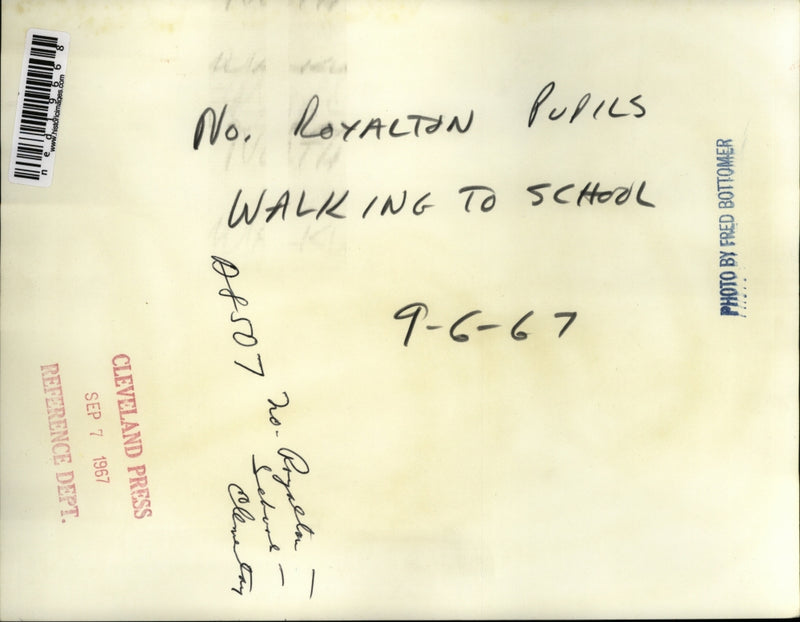 No. ROYALTON PUPILS
WALKING TO SCHOOL
9-6-67
PHOTO BY FRED BOTTOMER
CLEVELAND PRESS
SEP 7 1967
REFERENCE DEPT.
No. Royalton —
School —
www.historicimages.com